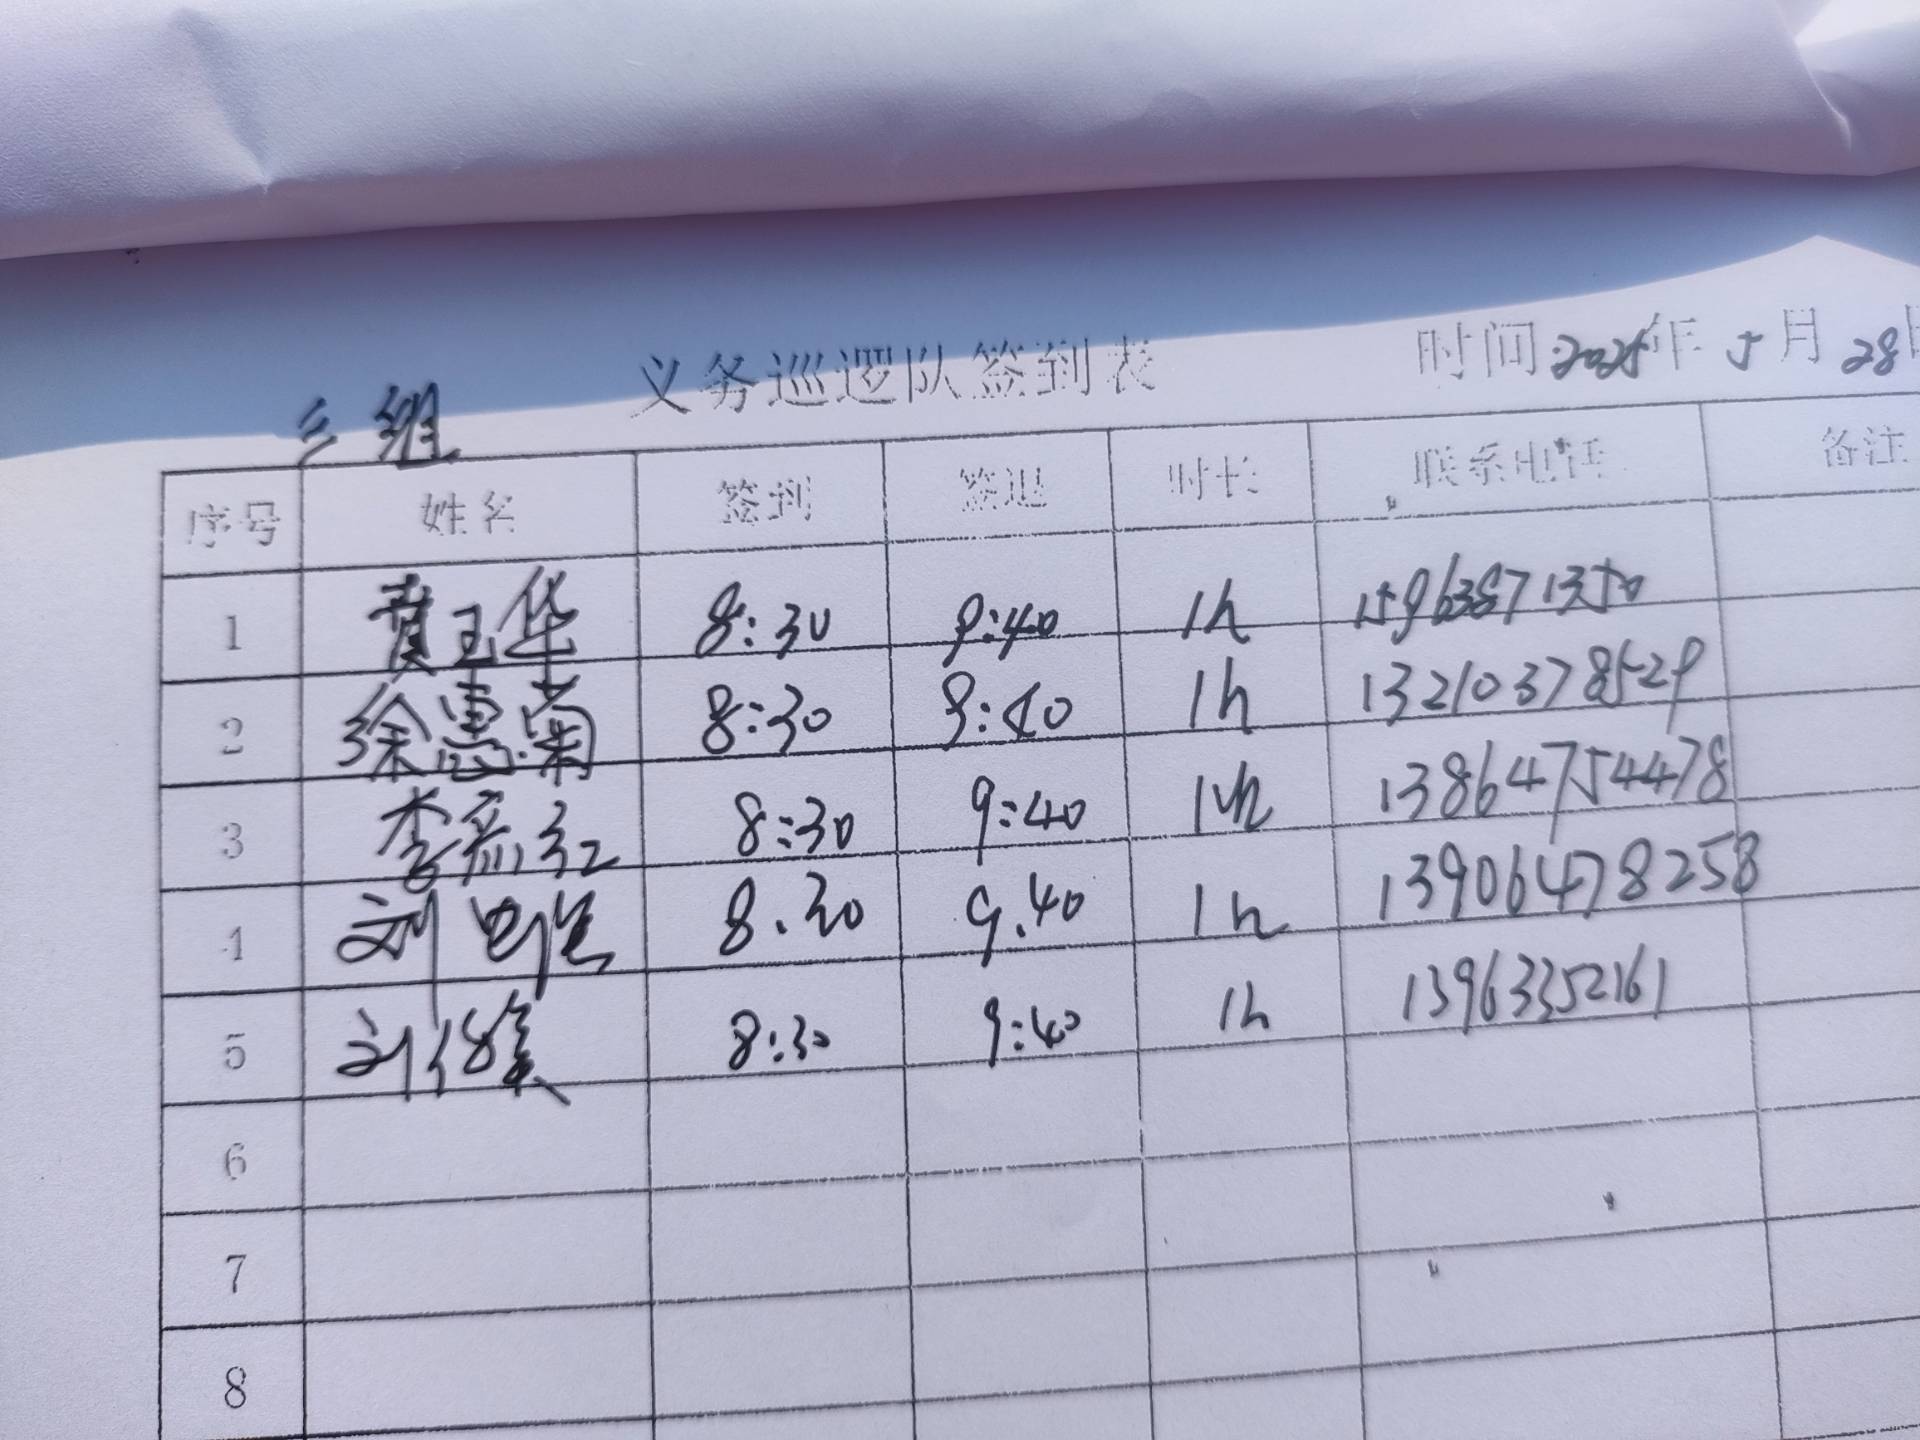 义务巡逻队签到表 时间:2025年 5月 28日
三组
序号 姓名 签到 签退 时长 联系电话 备注
1 黄玉华 8:30 9:40 1h 15963871350
2 徐惠菊 8:30 9:40 1h 13210378529
3 李燕红 8:30 9:40 1h 13864754478
4 刘 8.30 9.40 1h 13906478258
5 刘 8:30 9:40 1h 13963352161
6
7
8